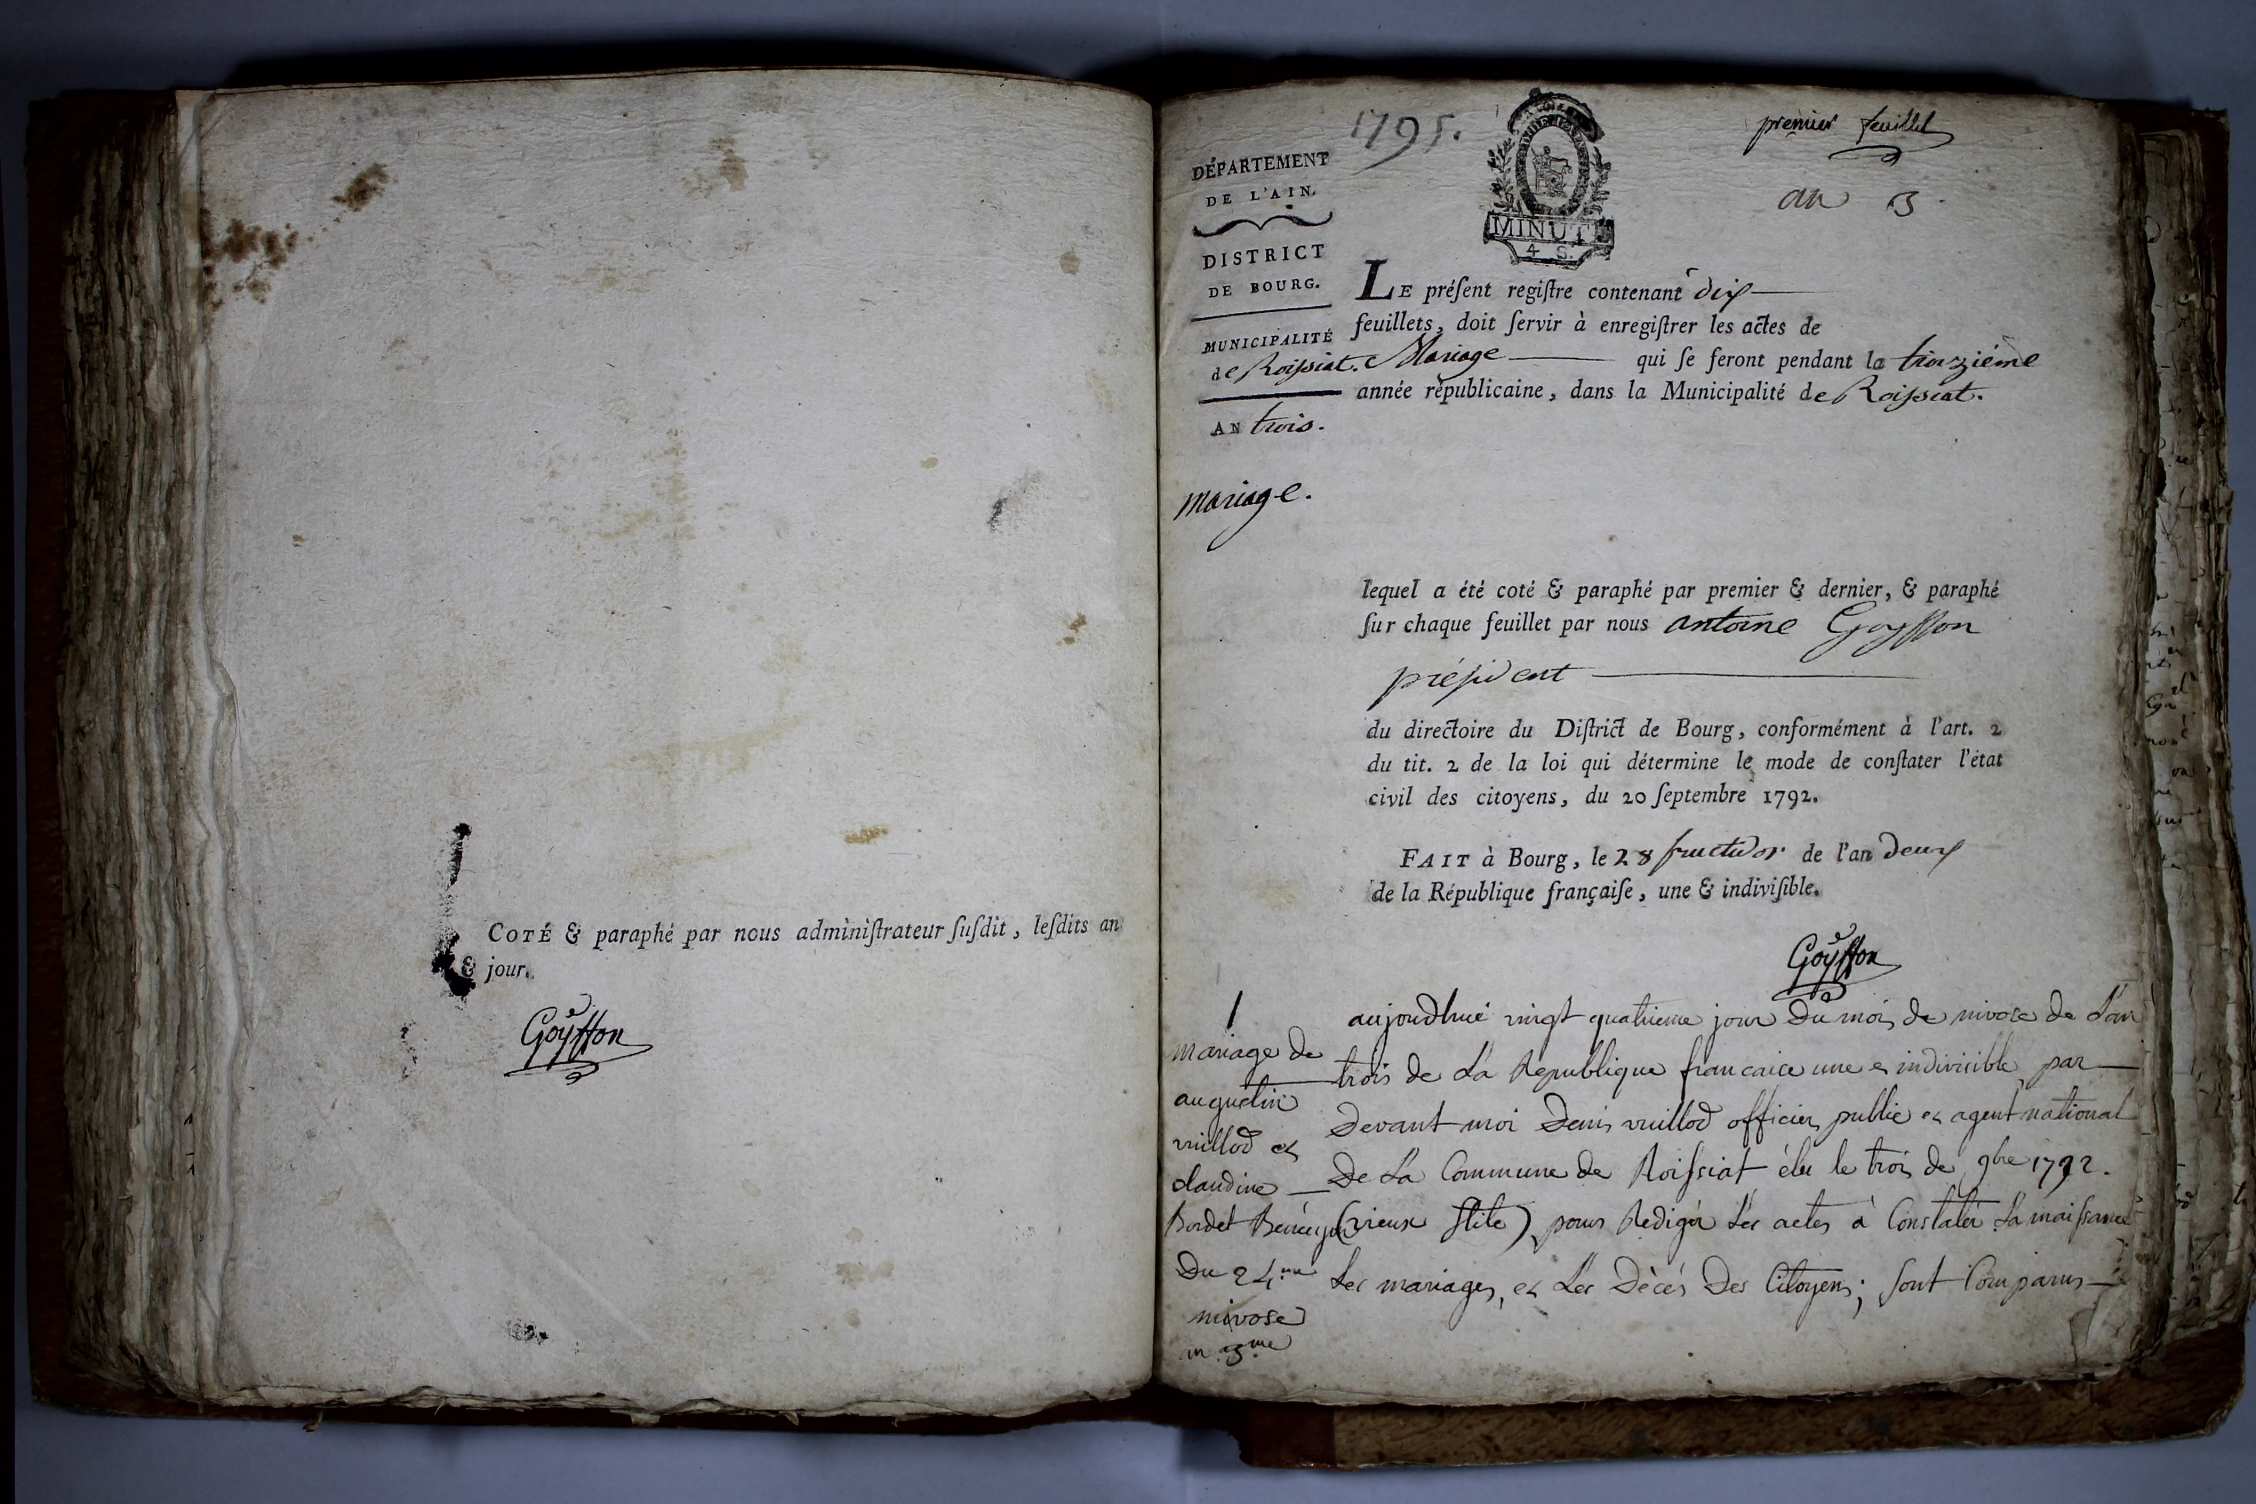 COTÉ & paraphé par nous adminiſtrateur ſuſdit, leſdits an
& jour.
Goyffon
1795.
premier feuillet
an 3
DÉPARTEMENT
DE L'AIN.
DISTRICT
DE BOURG.
MUNICIPALITÉ
de Roiſsiat.
AN trois.
mariage.
MINUT
4 S.
LE préſent regiſtre contenant dix
feuillets, doit ſervir à enregiſtrer les actes de
Mariage qui ſe feront pendant la troiziéme
année républicaine, dans la Municipalité de Roiſsiat.
lequel a été coté & paraphé par premier & dernier, & paraphé
ſur chaque feuillet par nous antoine Goyffon
préſident
du directoire du Diſtrict de Bourg, conformément à l'art. 2
du tit. 2 de la loi qui détermine le mode de conſtater l'état
civil des citoyens, du 20 ſeptembre 1792.
FAIT à Bourg, le 28 fructidor de l'an deux
de la République françaiſe, une & indiviſible.
Goyffon
1
mariage de
augustin
vuillod et
claudine
Bordet
Du 24.me
nivose
an 3me
aujourdhui vingt quatrieme jour Du mois de nivose de L'an
trois de La Republique francaise une et indivisible, par
Devant moi Denis vuillod officier public et agent national
De La Commune de Roiſsiat élu le trois de 9bre 1792.
(vieux stile) pour Rediger Les actes à Constater La naiſsance
Les mariages, et Les Dècés Des Citoyens; sont Comparus